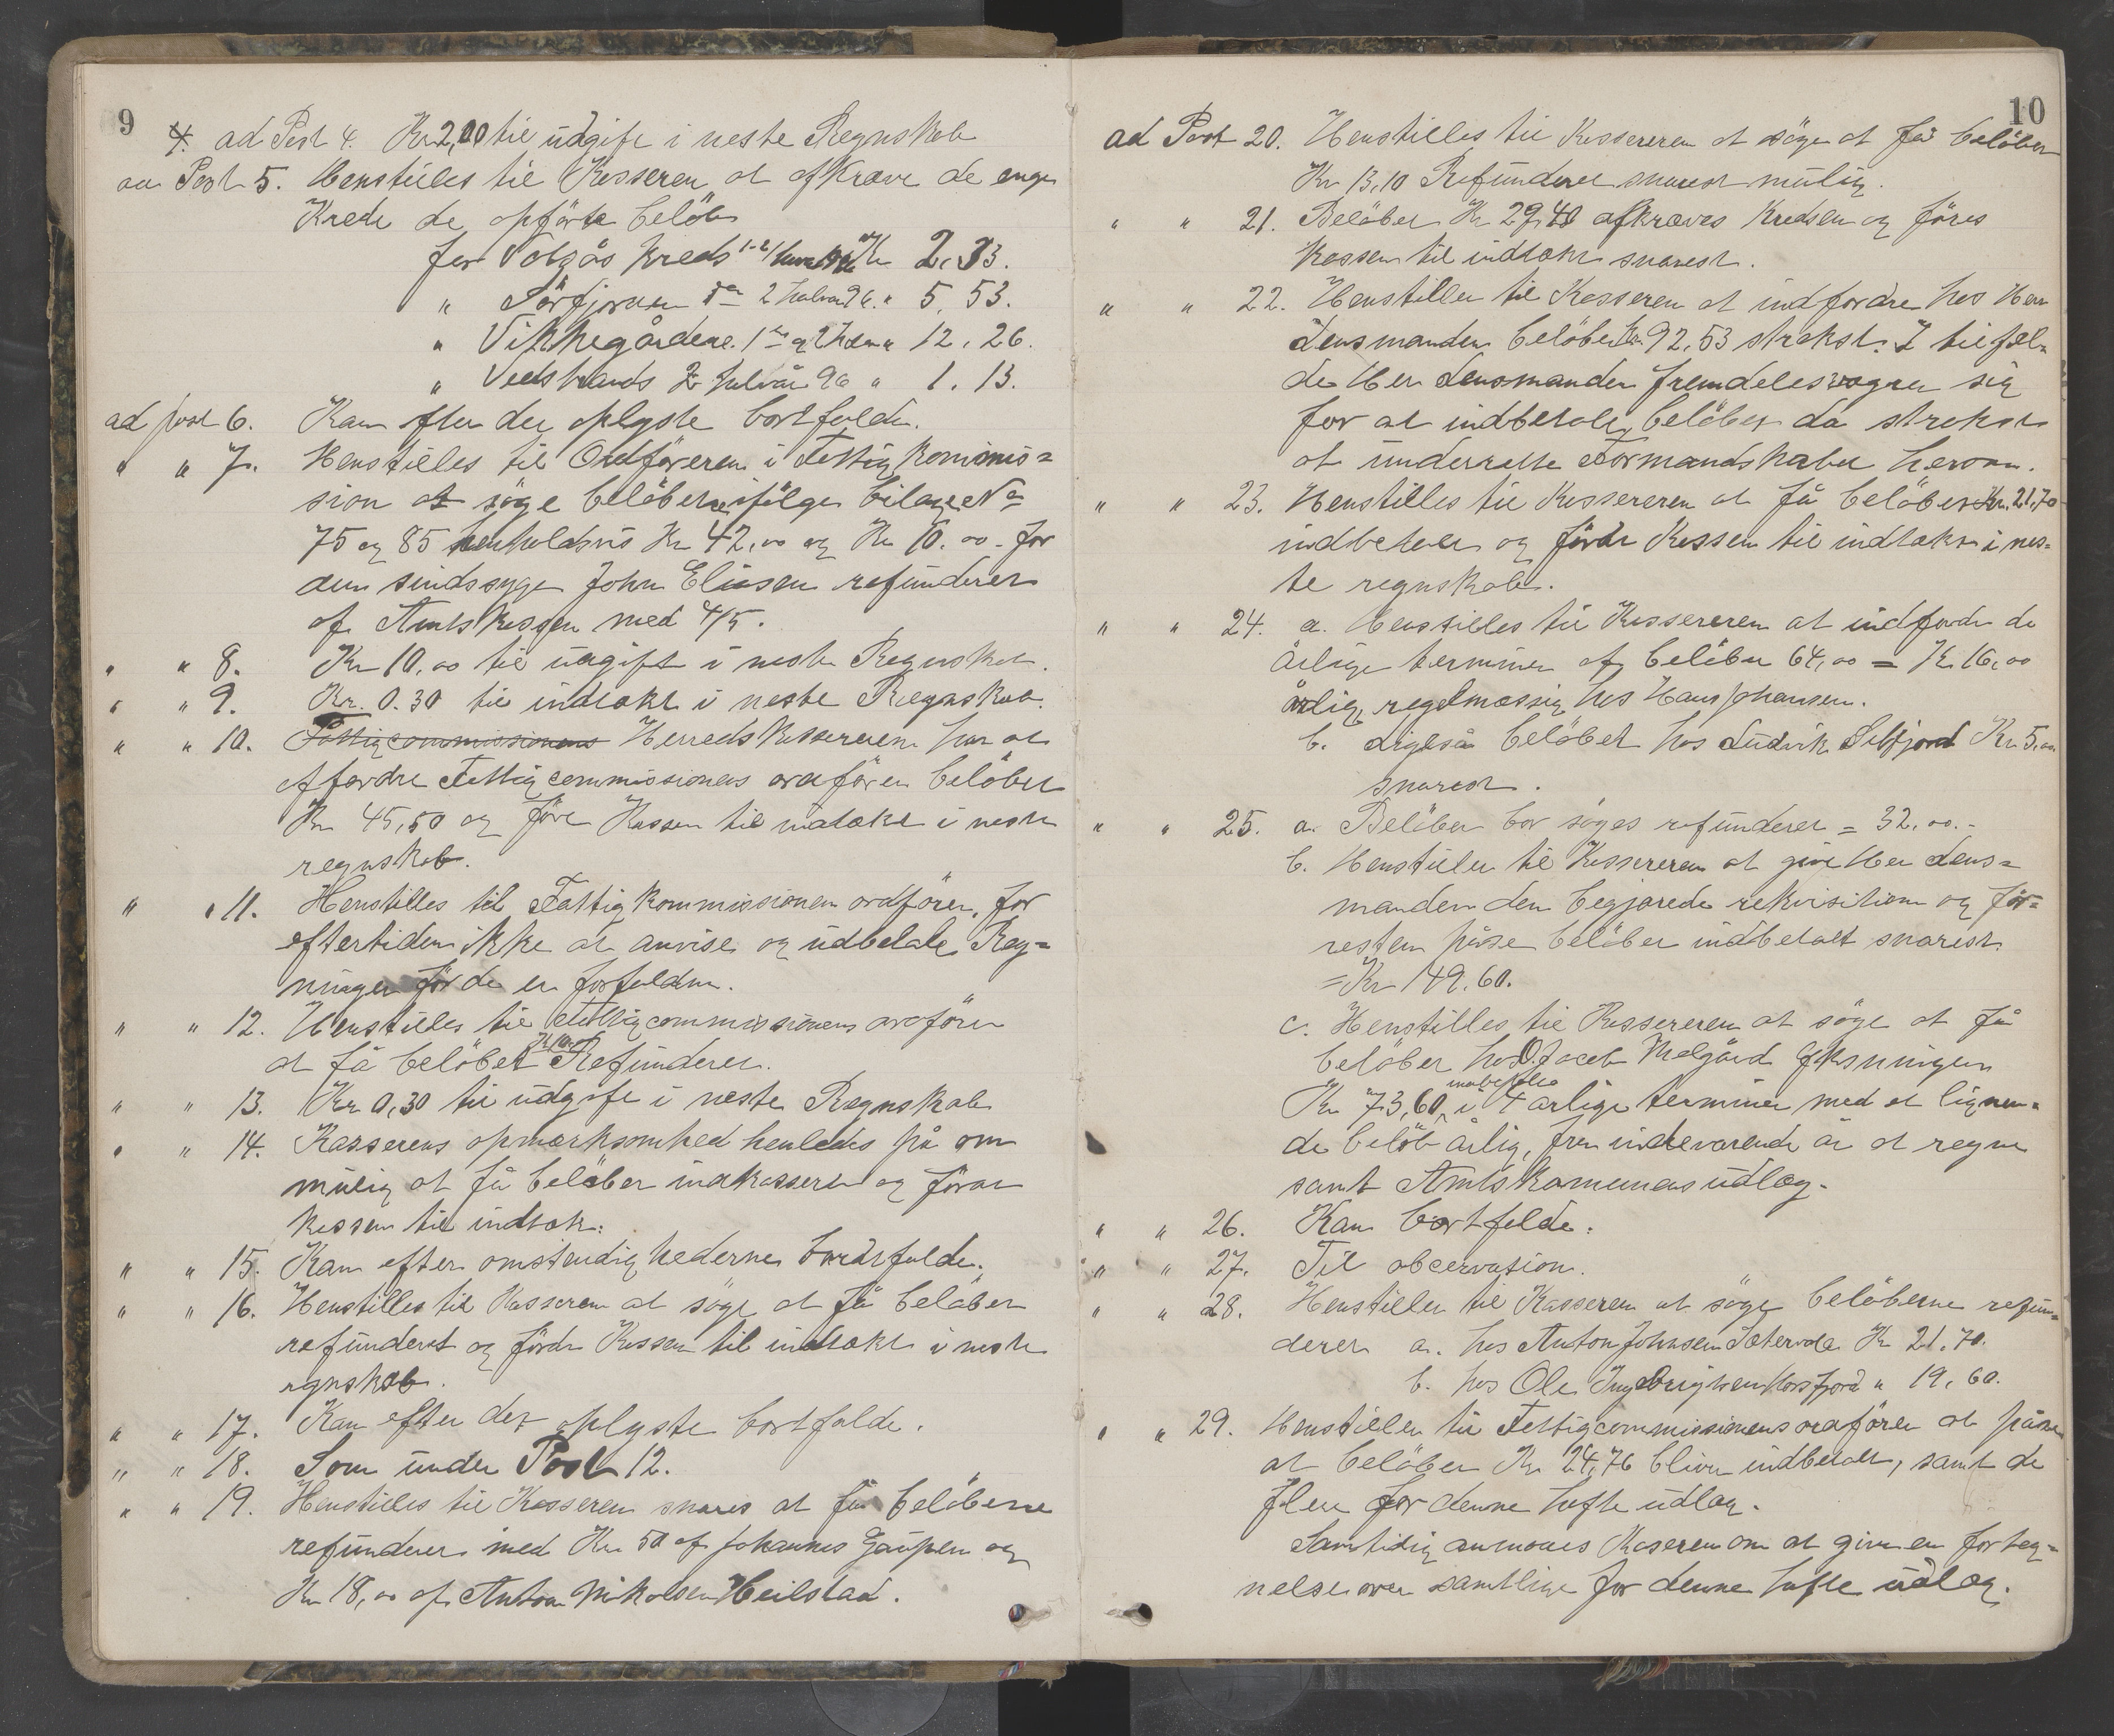 9
4. ad Post 4. Kr 2,00 til udgift i neste Regnskab
ad Post 5. Henstilles til Kasseren at afkræve de enge
Krede de opförte belöb
for Volgås Kreds 1-2/ Kr 2,33.
" Sörfjorden 2 halvår 96. " 5,53.
" Vikkegårdene 1ste og 2 " 12,26.
" Vedstrands 2 halvår 96 " 1.13.
ad post 6. Kan efter det oplyste bortfalde.
" " 7. Henstilles til Ordföreren i Fattigkommis=
sion at söge belöbene ifölge bilage No
75 og 85 henholdsvis Kr 42,00 og Kr 10.00 for
den sindssyge John Eliasen refunderet
af Amtskassen med 4/5.
" " 8. Kr 10,00 til udgift i neste Regnskab.
" " 9. Kr. 0.30 til indtækt i neste Regnskab.
" " 10. Fattigcommissionens Herredskassereren har at
affordre Fattigcommissionens ordförer belöbet
Kr 45,50 og före Kassen til indtækt i neste
regnskab.
" " 11. Henstilles til Fattigkommissionen ordförer, for
eftertiden ikke at anvise og udbetale Reg=
ninger för de er forfalden.
" " 12. Henstilles til Fattigcommissionens ordförer
at få belöbet Refunderet.
" " 13. Kr 0,30 til udgift i neste Regnskab
" " 14. Kasserens opmærksomhed henledes på om
mulig at få belöbet indkasseret og förer
kassen til indtæk.
" " 15. Kan efter omstendighederne bortfalde.
" " 16. Henstilles til Kasseren at söge at få belöbet
refunderet og förde Kassen til indtækt i neste
regnskab.
" " 17. Kan efter det oplyste bortfalde.
" " 18. Som under Post 12.
" " 19. Henstilles til Kasseren snares at få belöbene
refunderet med Kr 50 af Johannes Gaupen og
Kr 18,00 af Anton Nikolsen Heilstad.
10
ad Post 20. Henstilles til Kassereren at söge at få belöbet
Kr 13,10 Refunderet snarest mulig.
" " 21. Belöbet Kr 29,40 afkræves Kredsen og föres
Kassen til indtækt snarest.
" " 22. Henstilles til Kasseren at indfordre hos Herr
Lensmanden belöbet Kr 92,53 strakst. I tilfæl=
de Herr Lensmanden fremdeles vægrer sig
for at indbetale belöbet da strakst
at underrette Formandskabet herom.
" " 23. Henstilles til Kassereren at få belöbet Kr. 21,70
indbetalt og förde Kassen til indtækt i nes=
te regnskab.
" " 24. a. Henstilles til Kassereren at indfordre de
årlige terminer af belöbet 64,00 = Kr. 16,00
årlig, regelmæssig hos Hans Johansen.
b. Ligeså belöbet hos Ludvik Selfjord Kr 5,00
snarest.
" " 25. a. Belöbet bör söges refunderet = 32.00.-
b. Henstilles til Kassereren at give Herr Lens=
manden den begjærede rekvisition og for=
resten påse belöbet indbetalt snarest.
= Kr 149.60.
c. Henstilles til Kassereren at söge at få
belöbet hos O. Jacob Melgård Gksningen
Kr 73,60, i 4 årlige terminer med et lignen=
de belöb årlig, fra indeværende år at regne
samt Amtskomunens udlæg.
" " 26. Kan bortfalde.
" " 27. Til obcervation.
" " 28. Henstilles til Kasseren at söge belöbene refun=
deret a. hos Anton Johnsen Kr 21.70.
b. hos Ole Ingebrigtsen Horsfjord " 19,60.
" " 29. Henstilles til Fattigcommissionens ordförer at påse
at belöbet Kr 24,76 bliver indbetalt, samt de
flere for denne hafte udlæg.
Samtidig anmodes Kaseren om at give en forteg=
nelse over samtlige for denne hafte udlæg.